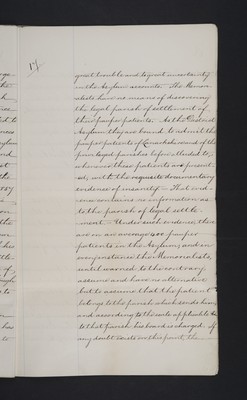 17
great trouble and to great uncertainty
in the Asylum accounts. The Memor-
ialists have no means of discovering
the legal parish of settlement of
their pauper patients. As the District
Asylum they are bound to admit the
pauper patients of Lanarkshire and of the
legal parishes before alluded to,
whenever these patients are present-
ed, with the requisite documentary
evidence of insanity. That evid-
ence contains no information as
to the parish of legal settle-
ment. Under such evidence there
are on an average 400 pauper
patients in the Asylum, and in
every instance the Memorialists,
until warned to the contrary,
assume and have no alternative
but to assume that the patient
belongs to the parish which sends him,
and according to the rule applicable
to that parish his board is charged. If
any doubt exists on this point, the